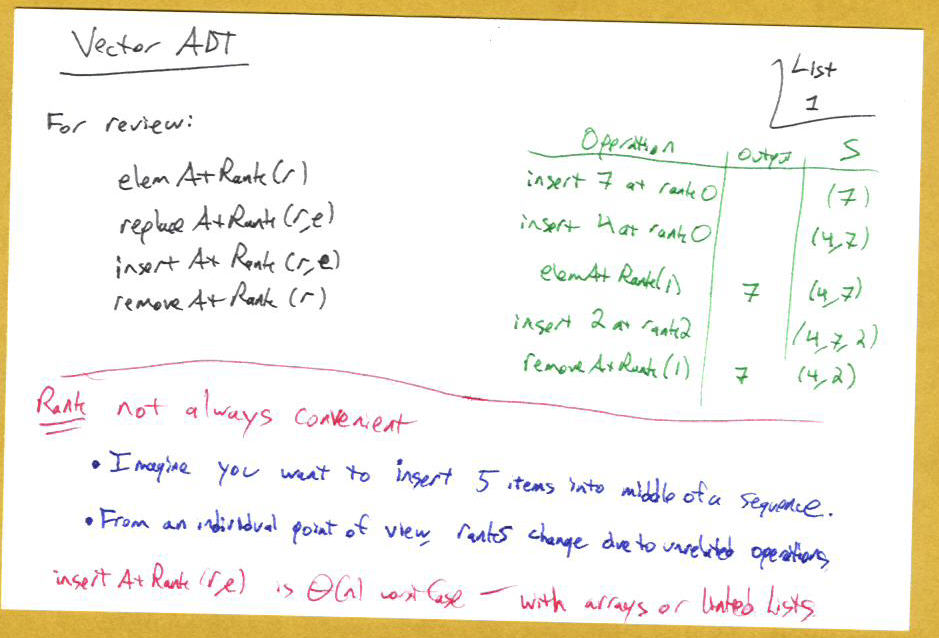 Vector ADT
List
1
For review:
elemAtRank(r)
replaceAtRank(r,e)
insertAtRank(r,e)
removeAtRank(r)
Operation output S
insert 7 at rank 0 (7)
insert 4 at rank 0 (4,7)
elemAtRank(1) 7 (4,7)
insert 2 at rank 2 (4,7,2)
removeAtRank(1) 7 (4,2)
Rank not always convenient
• Imagine you want to insert 5 items into middle of a sequence.
• From an individual point of view, ranks change due to unrelated operations
insertAtRank(r,e) is Θ(n) worst case – with arrays or linked lists